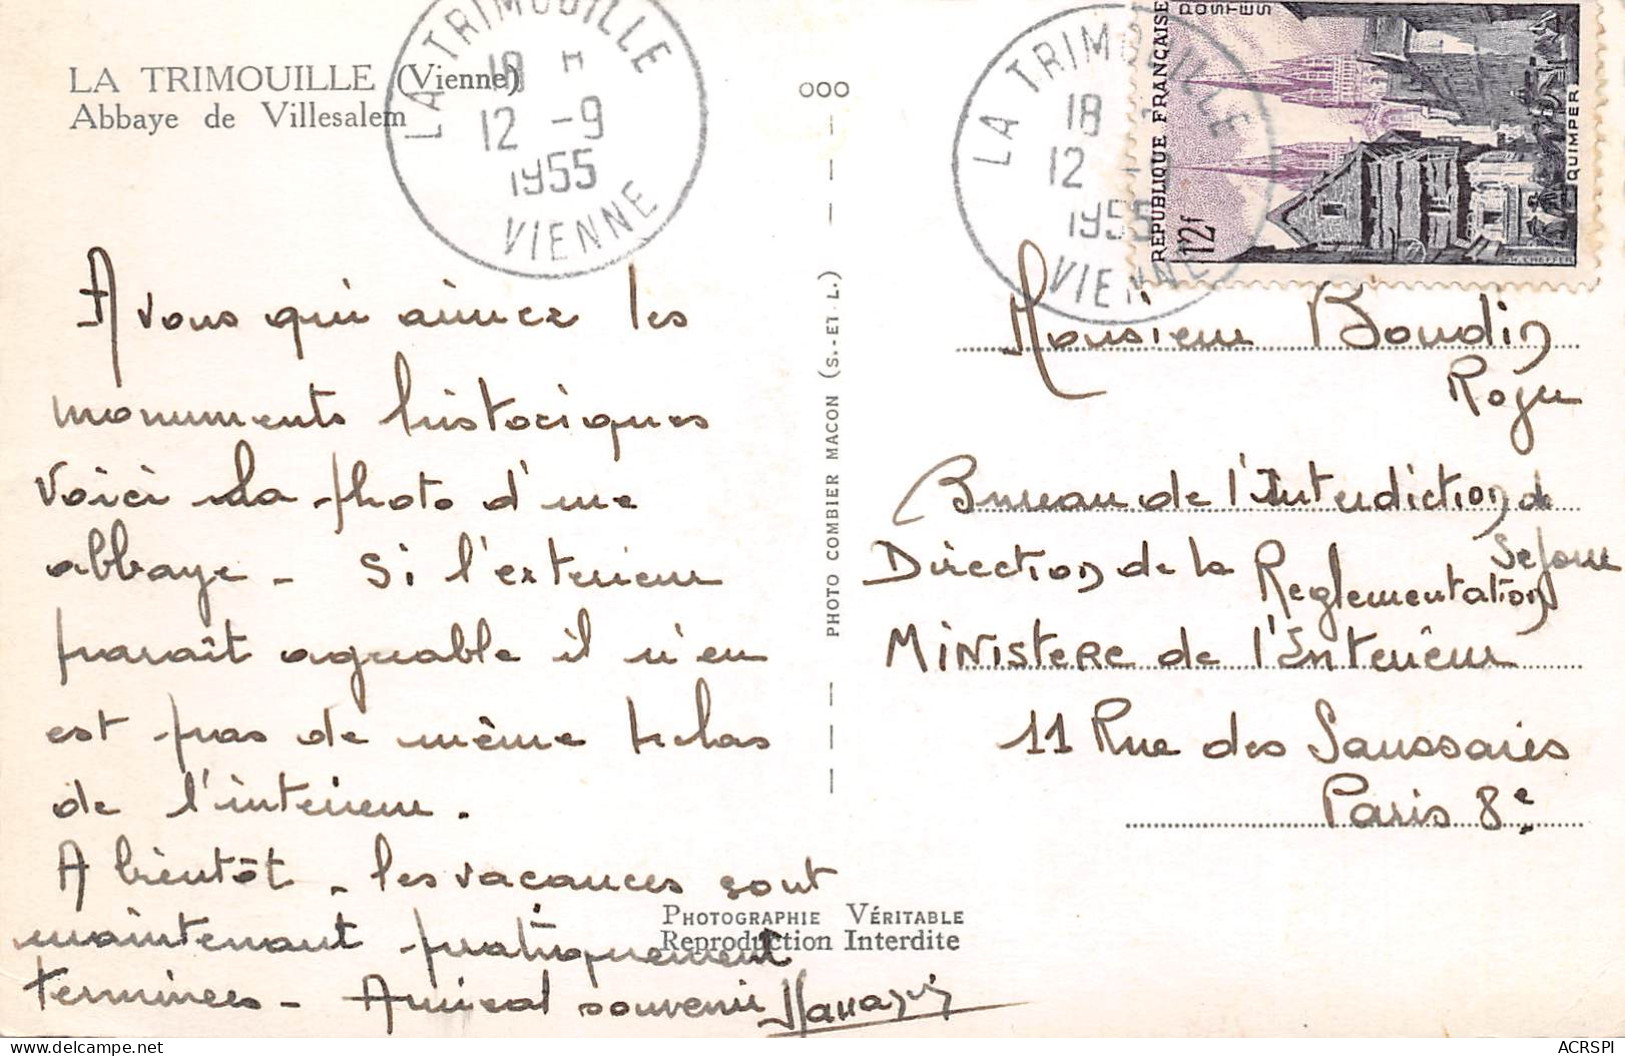 LA TRIMOUILLE (Vienne)
Abbaye de Villesalem
LA TRIMOUILLE
18 H
12 -9
1955
VIENNE
OOO
LA TRIMOUILLE
18
12
1955
VIENNE
POSTES
REPUBLIQUE FRANÇAISE
12f
QUIMPER
A vous qui aimez les
monuments historiques
voici la photo d'une
abbaye - Si l'exterieur
parait agreable il n'en
est pas de même helas
de l'interieur.
A bientôt - les vacances sont
maintenant pratiquement
terminées - Amical souvenir
PHOTO COMBIER MACON (S.-ET-L.)
Monsieur Boudin
Roger
Bureau de l'Interdiction de
Sejour
Direction de la Reglementation
MiNisteRe de l'Interieur
11 Rue des Saussaies
Paris 8e
PHOTOGRAPHIE VÉRITABLE
Reproduction Interdite
ACRSPI